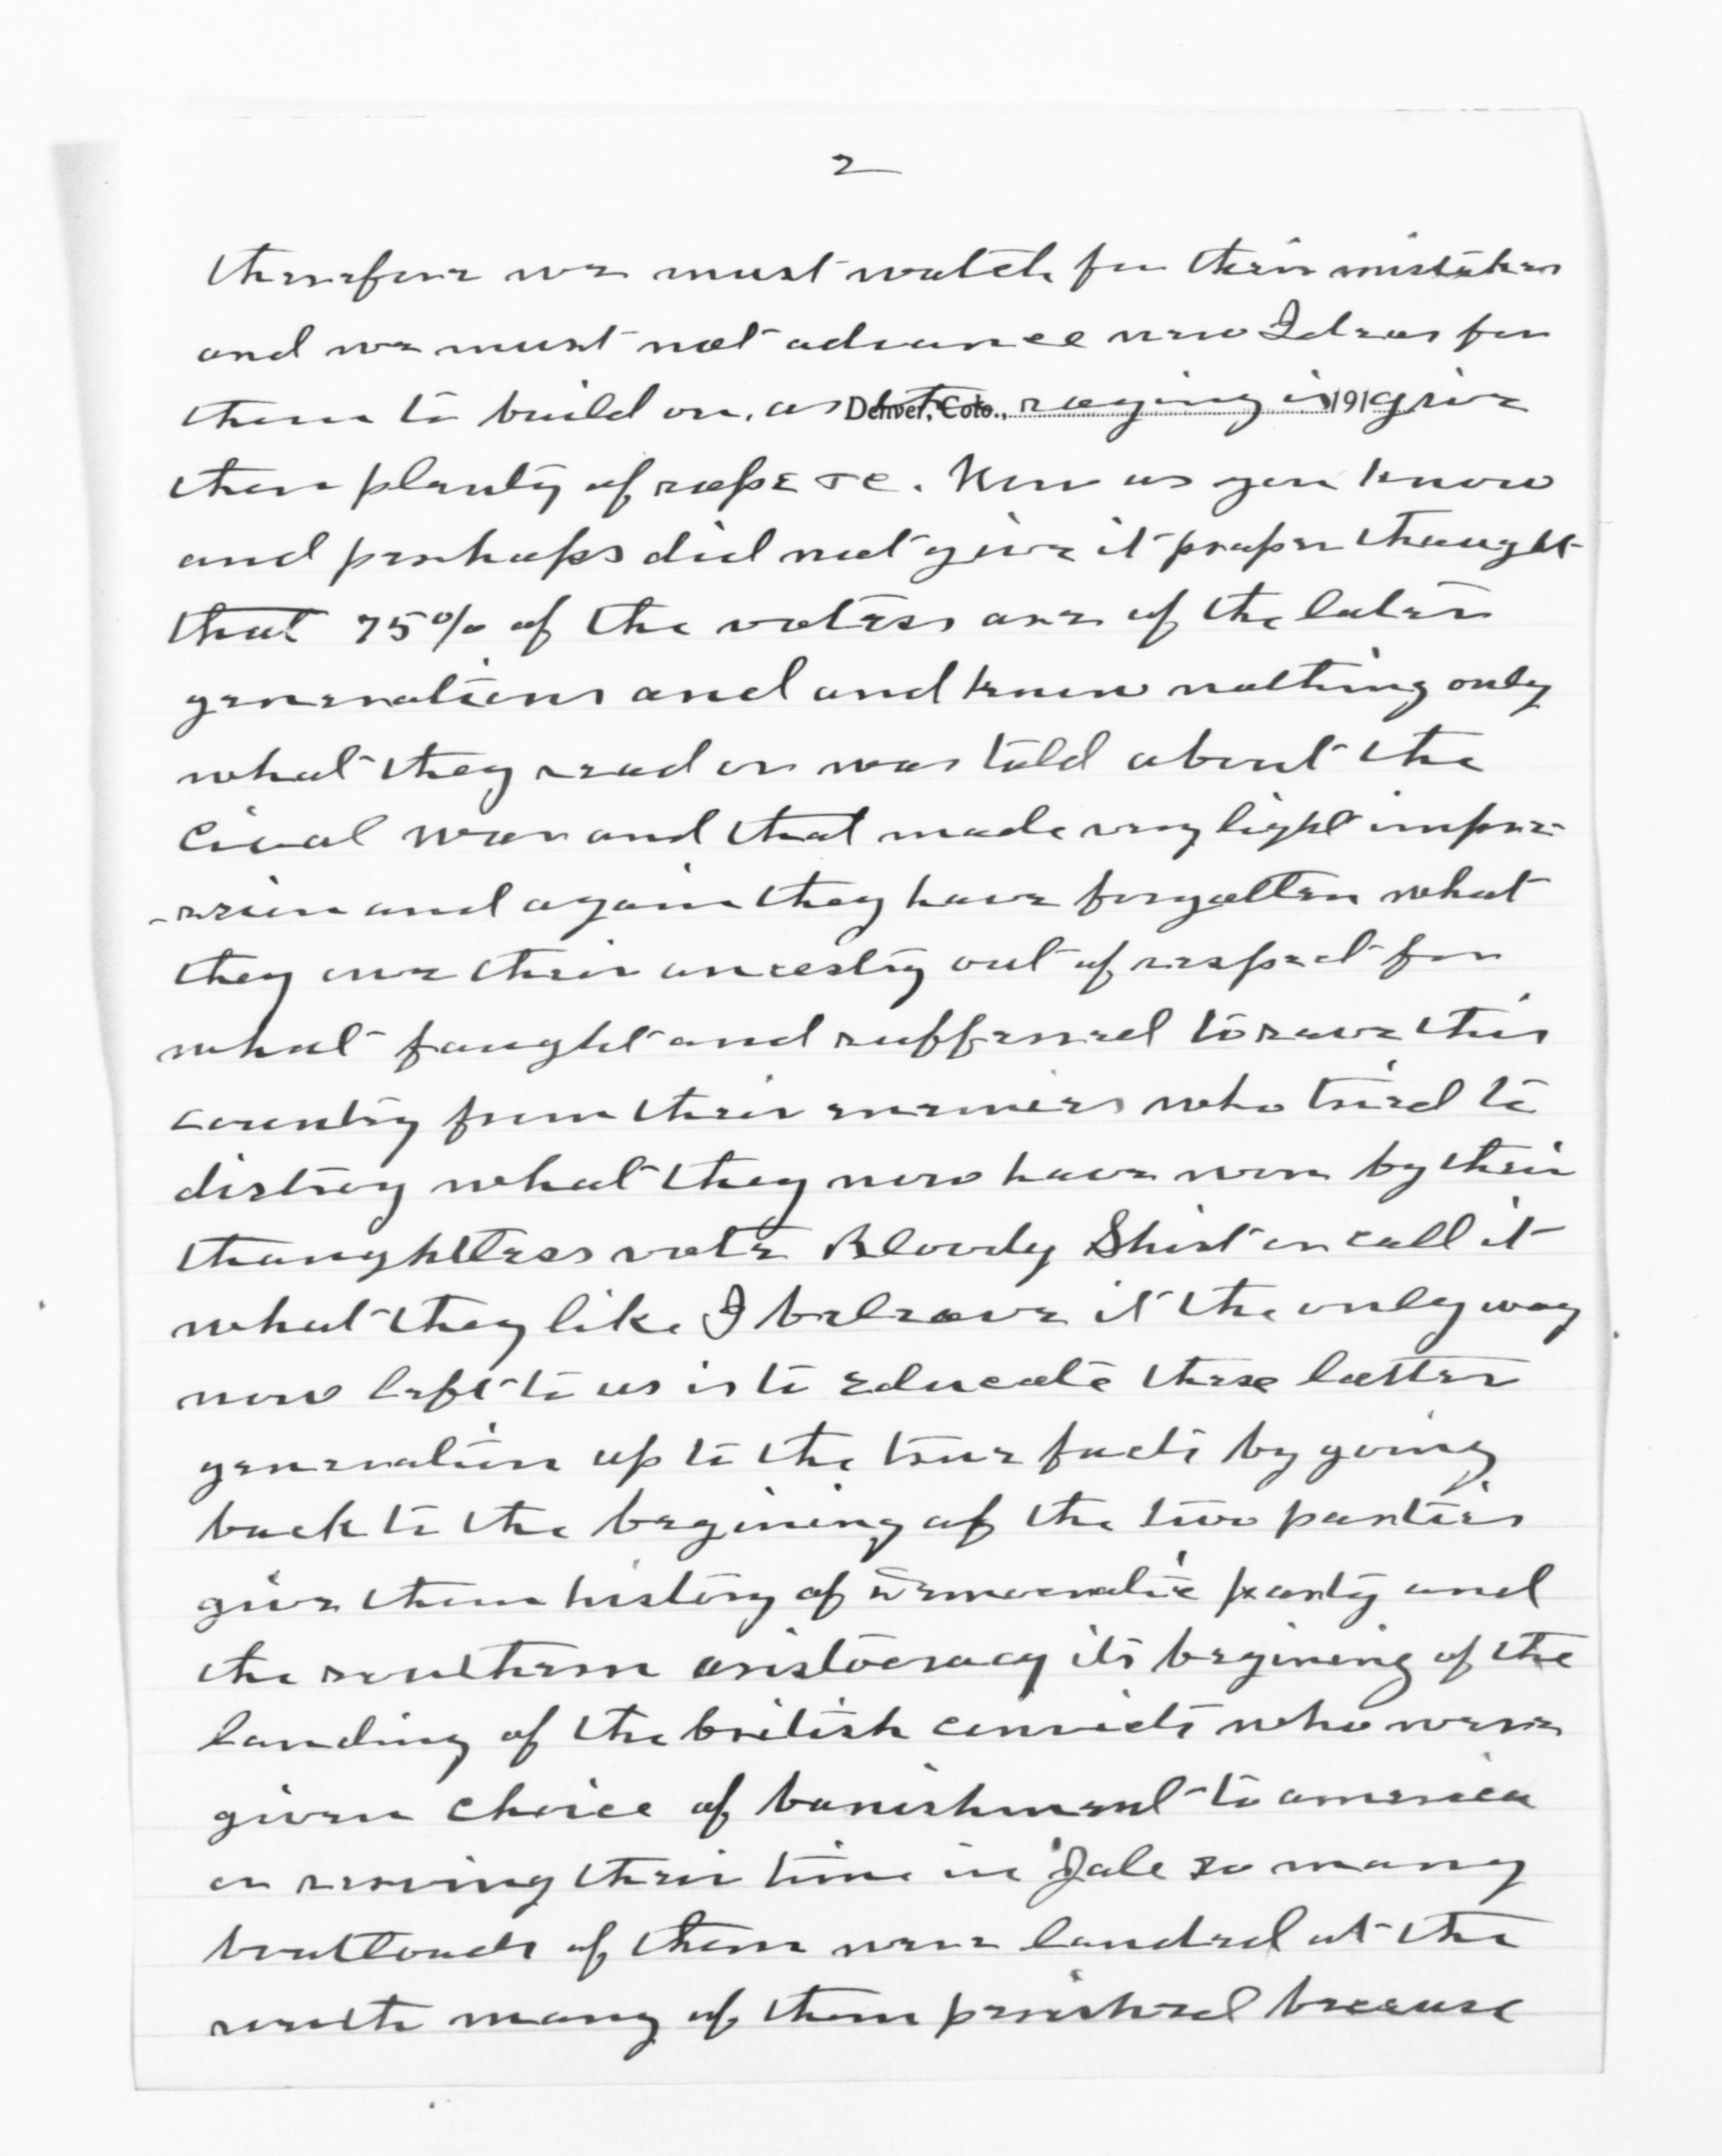 2
therefore we must watch for their mistakes
and we must not advance new Ideas for
them to build on, as the Denver, Colo., saying is 191 give
them plenty of rope TC. Now as you know
and perhaps did not give it proper thought
that 75% of the voters are of the later
generations and and know nothing only
what they read or was told about the
Cival War and that made very light impre-
-ssion and again they have forgotten what
they owe their ancestry out of respect for
what faught and suffered to save this
country from their enemies who tried to
distroy what they now have won by their
thaughtless vote Bloody Shirt or call it
what they like I beleave it the only way
now left to us is to educate these latter
generation up to the true facts by going
back to the begining of the two parties
give them history of Democratic party and
the southern aristocracy its begining of the
landing of the british convicts who were
given choice of banishment to america
or serving their time in Jale so many
boatloads of them were landed at the
south many of them perished because